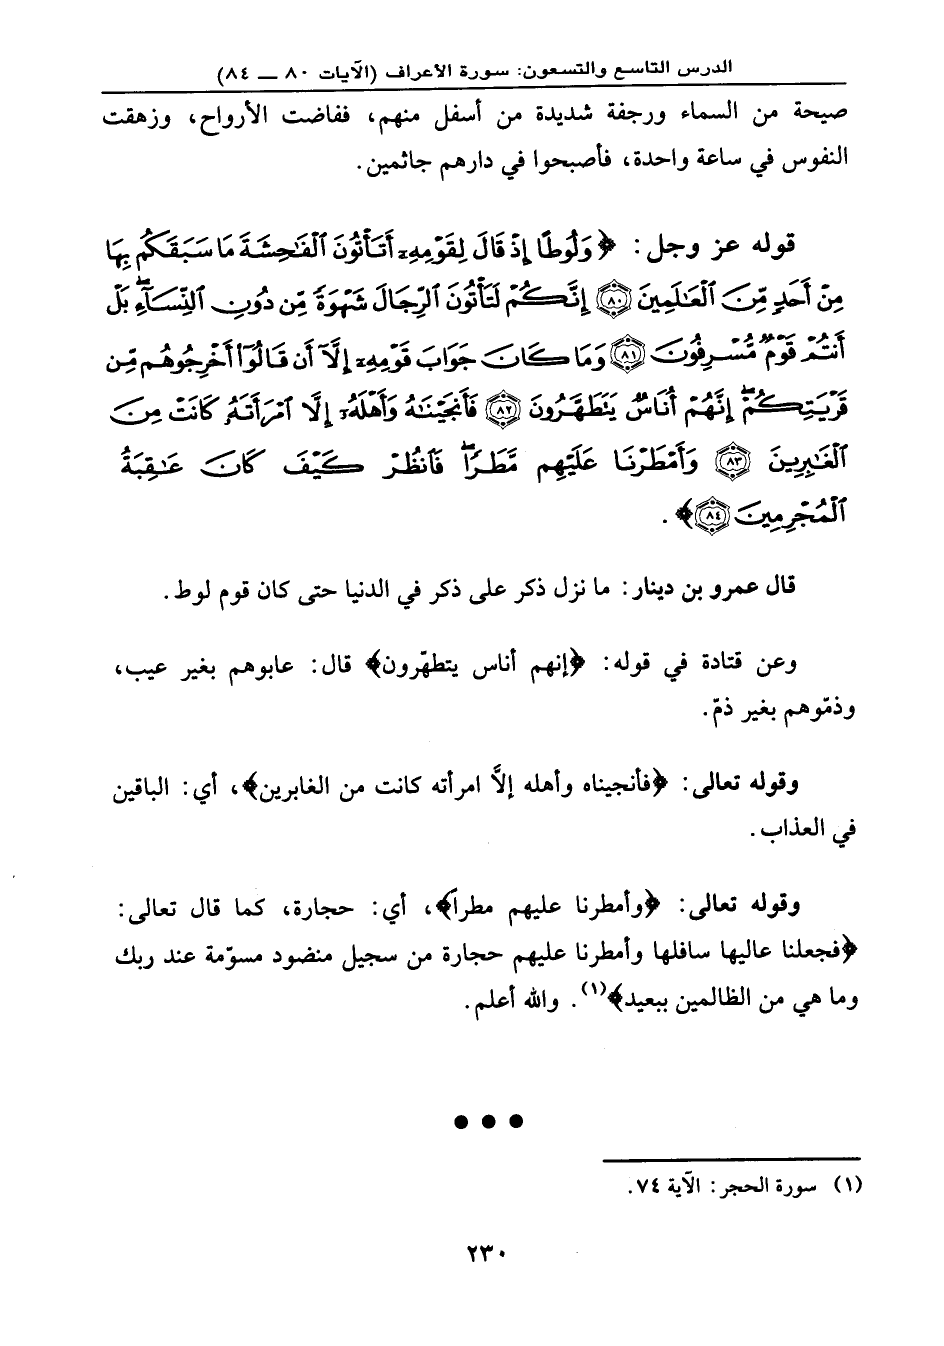 الدرس التاسع والتسعون: سورة الأعراف (الآيات ٨٠ ــ ٨٤)
صيحة من السماء ورجفة شديدة من أسفل منهم، ففاضت الأرواح، وزهقت
النفوس في ساعة واحدة، فأصبحوا في دارهم جاثمين.
قوله عز وجل: ﴿وَلُوطًا إِذْ قَالَ لِقَوْمِهِۦٓ أَتَأْتُونَ ٱلْفَـٰحِشَةَ مَا سَبَقَكُم بِهَا
مِنْ أَحَدٍ مِّنَ ٱلْعَـٰلَمِينَ ٨٠ إِنَّكُمْ لَتَأْتُونَ ٱلرِّجَالَ شَهْوَةً مِّن دُونِ ٱلنِّسَآءِ ۚ بَلْ
أَنتُمْ قَوْمٌ مُّسْرِفُونَ ٨١ وَمَا كَانَ جَوَابَ قَوْمِهِۦٓ إِلَّآ أَن قَالُوٓا۟ أَخْرِجُوهُم مِّن
قَرْيَتِكُمْ ۖ إِنَّهُمْ أُنَاسٌ يَتَطَهَّرُونَ ٨٢ فَأَنجَيْنَـٰهُ وَأَهْلَهُۥٓ إِلَّا ٱمْرَأَتَهُۥ كَانَتْ مِنَ
ٱلْغَـٰبِرِينَ ٨٣ وَأَمْطَرْنَا عَلَيْهِم مَّطَرًا ۖ فَٱنظُرْ كَيْفَ كَانَ عَـٰقِبَةُ
ٱلْمُجْرِمِينَ ٨٤﴾.
قال عمرو بن دينار: ما نزل ذكر على ذكر في الدنيا حتى كان قوم لوط.
وعن قتادة في قوله: ﴿إنهم أناس يتطهّرون﴾ قال: عابوهم بغير عيب،
وذمّوهم بغير ذمّ.
وقوله تعالى: ﴿فأنجيناه وأهله إلاَّ امرأته كانت من الغابرين﴾، أي: الباقين
في العذاب.
وقوله تعالى: ﴿وأمطرنا عليهم مطراً﴾، أي: حجارة، كما قال تعالى:
﴿فجعلنا عاليها سافلها وأمطرنا عليهم حجارة من سجيل منضود مسوّمة عند ربك
وما هي من الظالمين ببعيد﴾(١). والله أعلم.
● ● ●
(١) سورة الحجر: الآية ٧٤.
٢٣٠